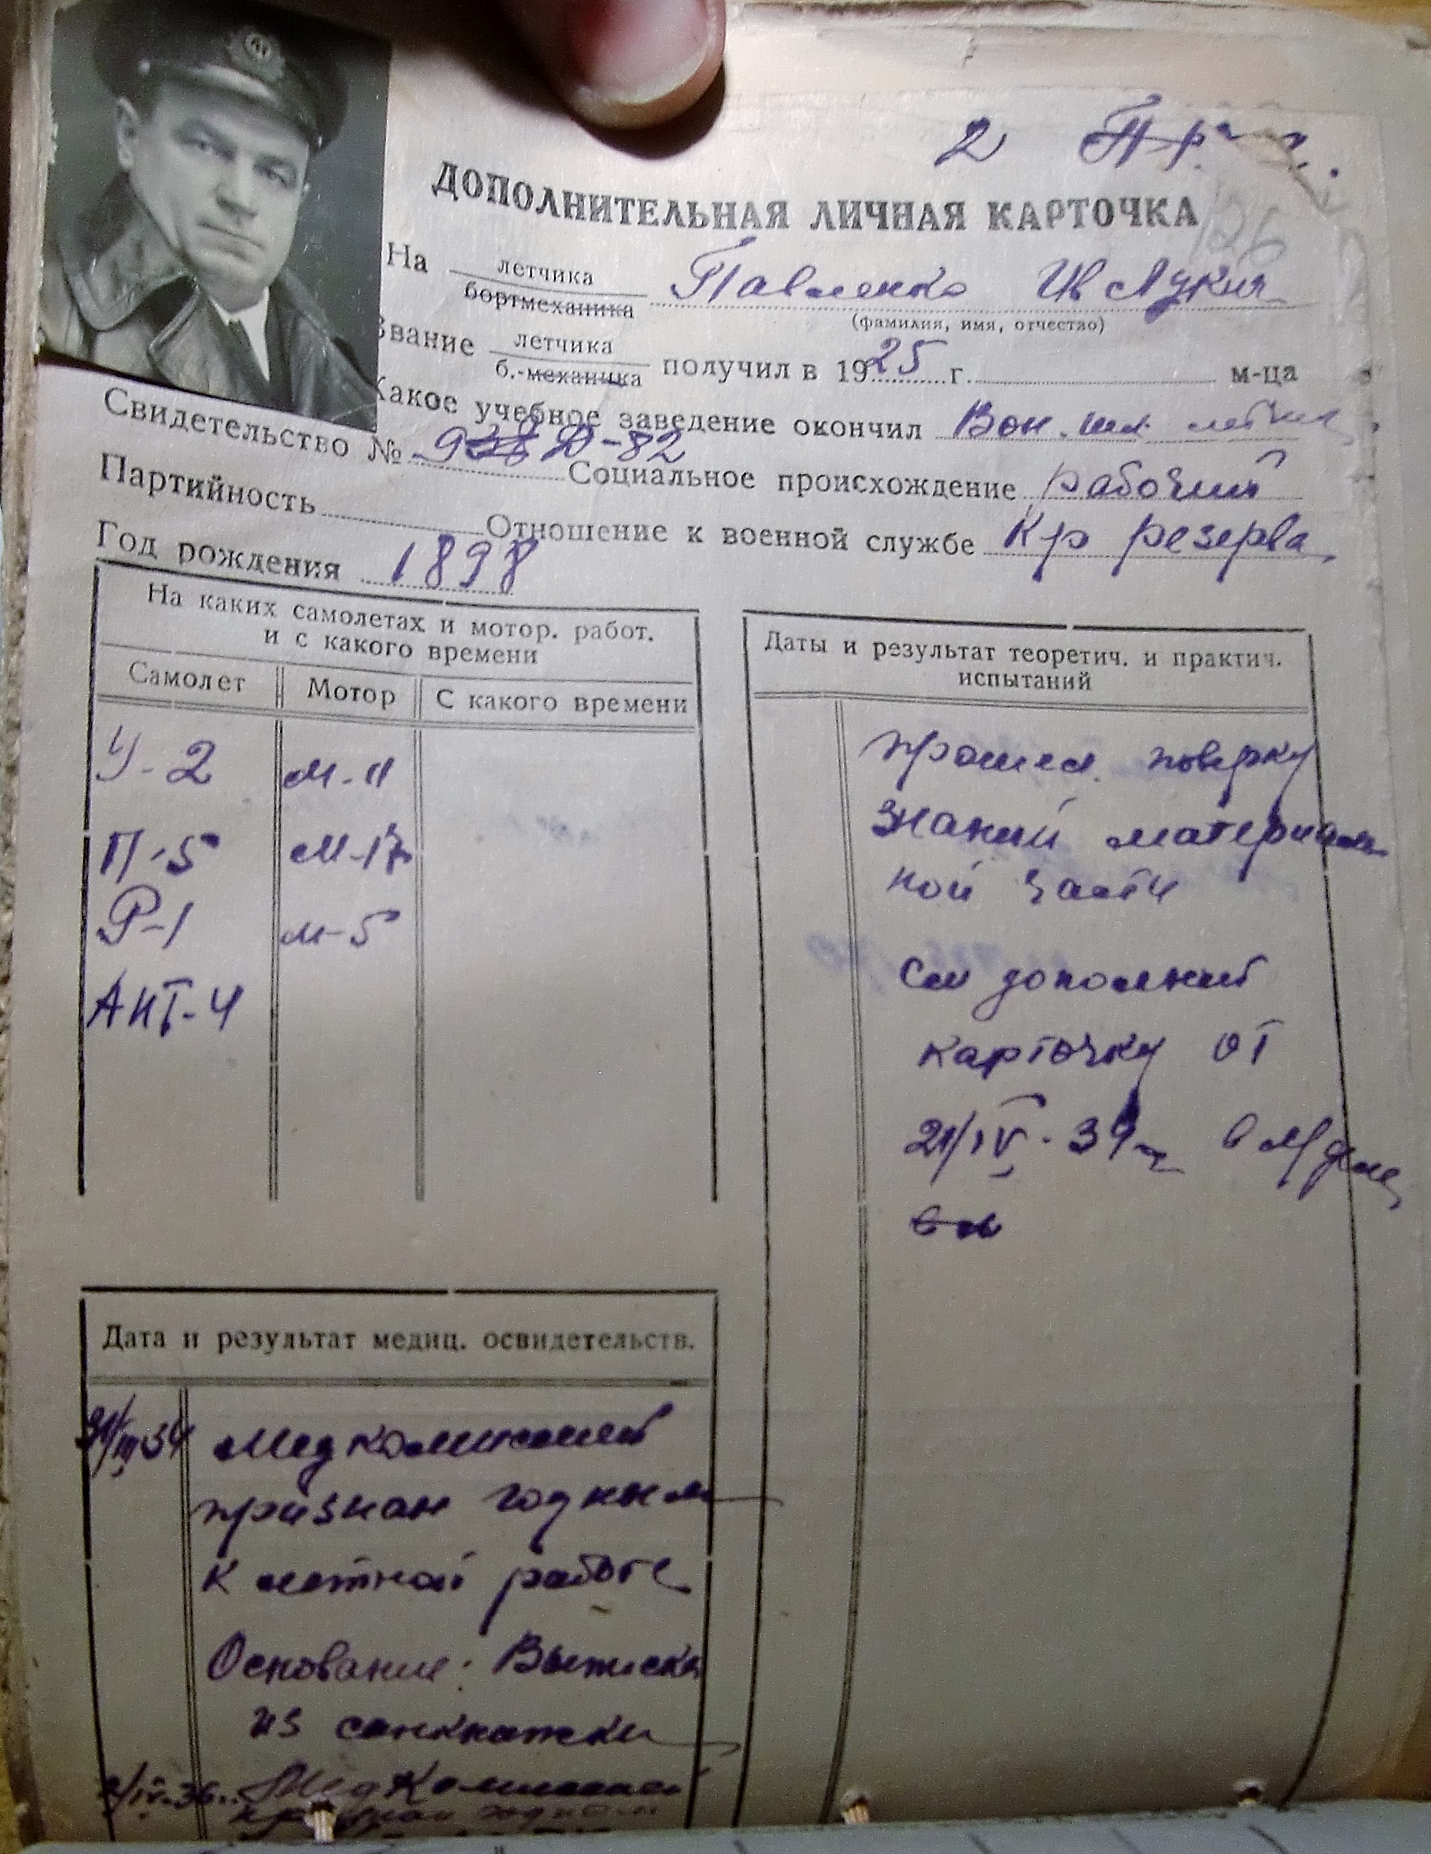 2
126
ДОПОЛНИТЕЛЬНАЯ ЛИЧНАЯ КАРТОЧКА
На летчика Павленко Ив Лукич
бортмеханика
(фамилия, имя, отчество)
Звание летчика получил в 1925 г. м-ца
б.-механика
Какое учебное заведение окончил Воен. шк. летчик
Свидетельство № Д-82
Социальное происхождение рабочий
Партийность
Отношение к военной службе Кр резерва
Год рождения 1898
На каких самолетах и мотор. работ.
и с какого времени
Самолет Мотор С какого времени
У-2 М-11
П-5 М-17
Р-1 М-5
АНТ-4
Даты и результат теоретич. и практич.
испытаний
прошел поверку
знаний материаль
ной части
См дополнит
карточку от
21/IV-34г
Дата и результат медиц. освидетельств.
31/III-34 Медкомиссией
признан годным
к летной работе
Основание: Выписка
из санкнижки
2/IV-36г. Медкомиссией
признан годным